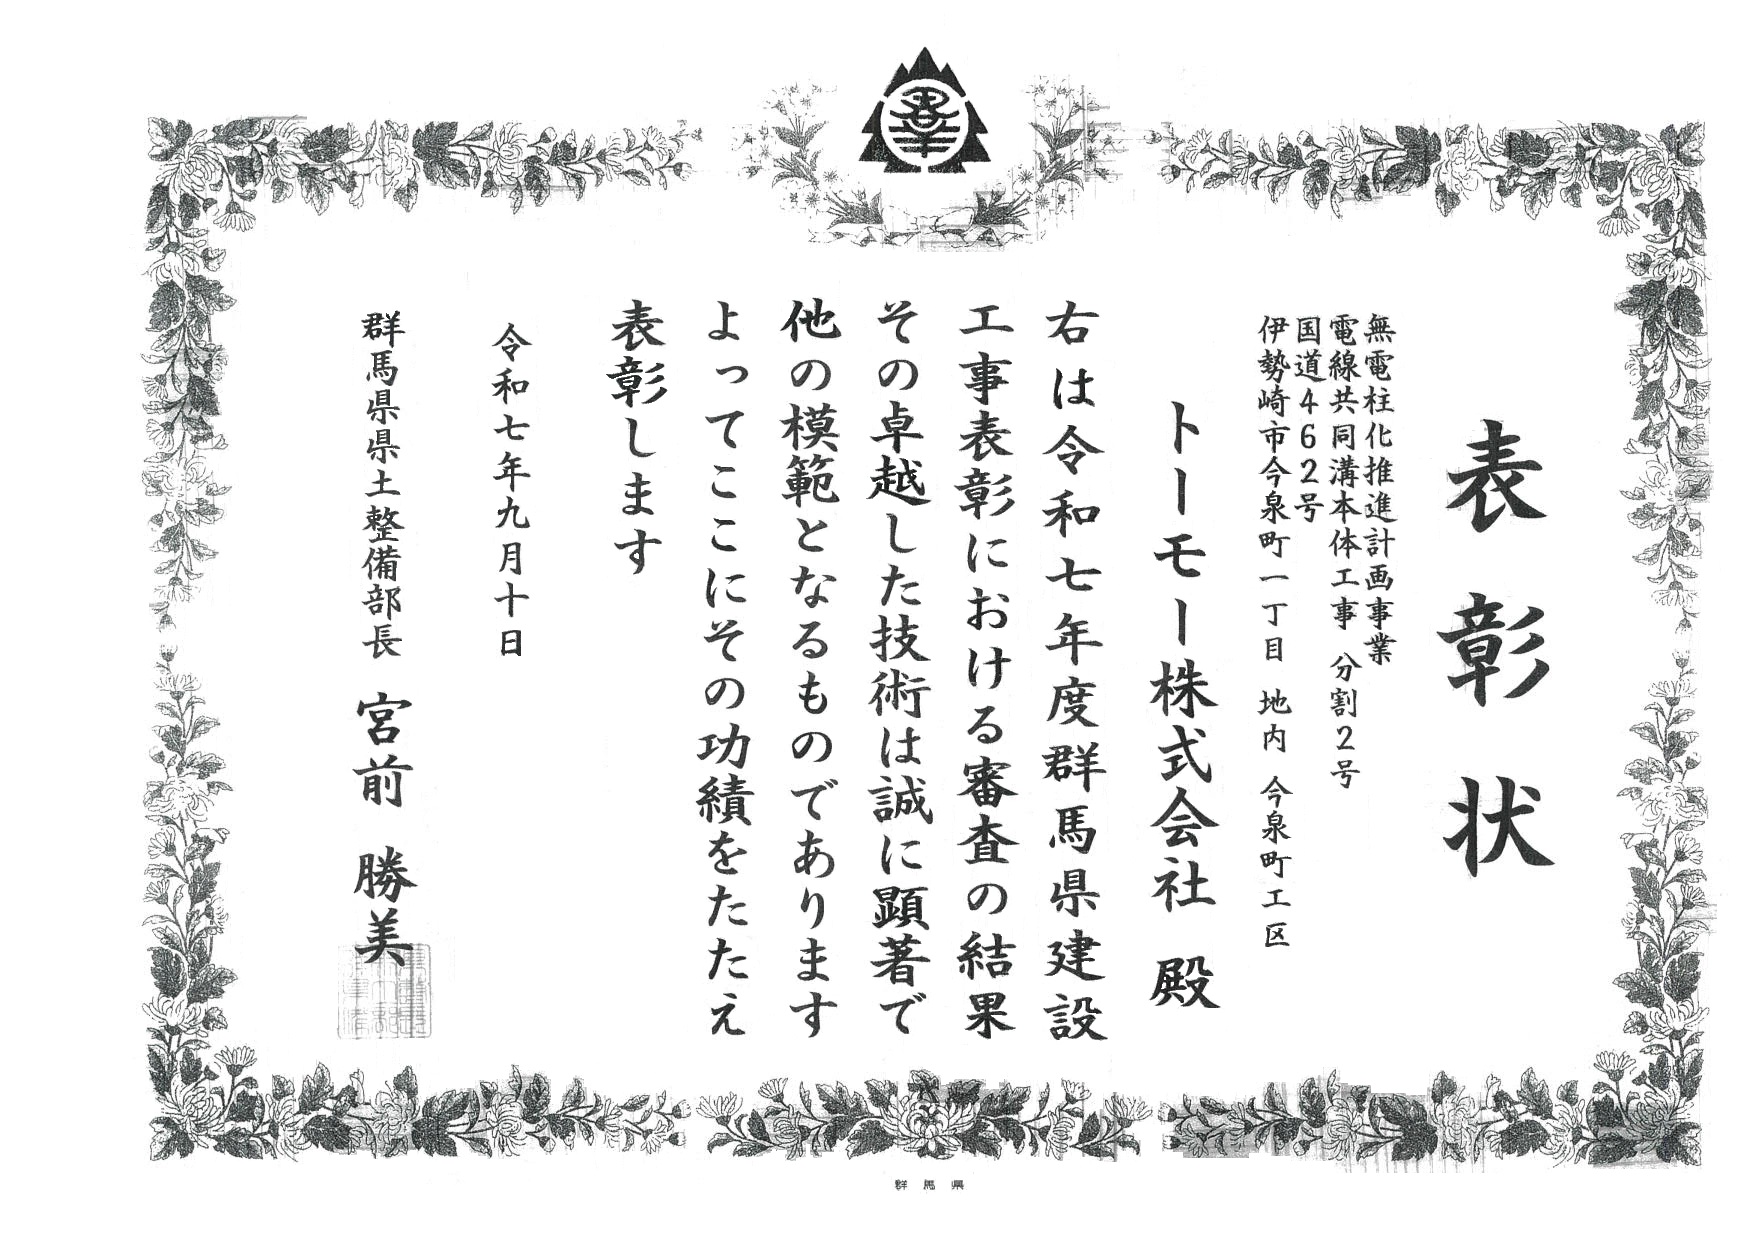 表彰状
無電柱化推進計画事業
電線共同溝本体工事 分割2号
国道462号
伊勢崎市今泉町一丁目 地内 今泉町工区
トーモー株式会社 殿
右は令和七年度群馬県建設
工事表彰における審査の結果
その卓越した技術は誠に顕著で
他の模範となるものであります
よってここにその功績をたたえ
表彰します
令和七年九月十日
群馬県県土整備部長 宮前 勝美
群馬県